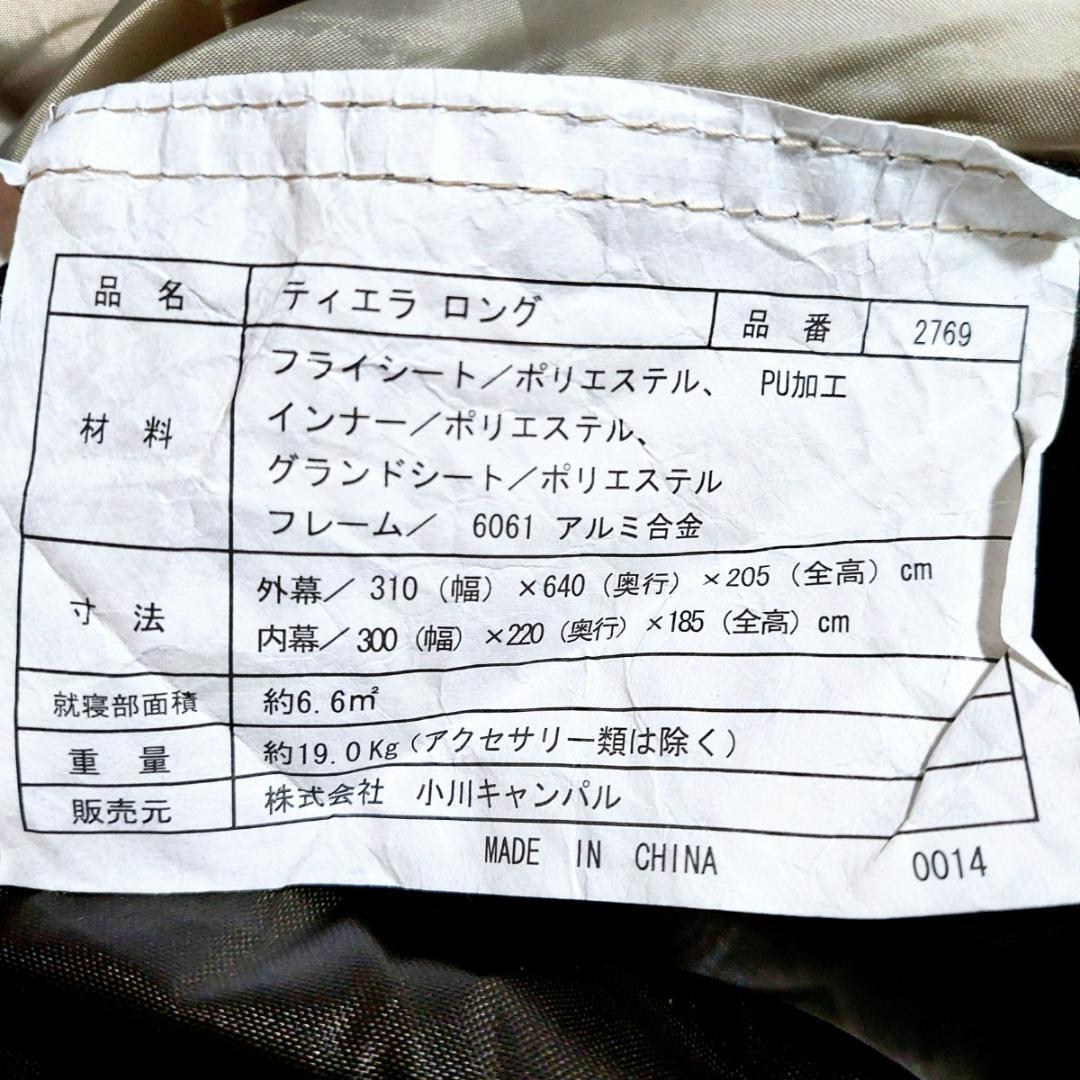 品 名 ティエラ ロング 品 番 2769
材 料 フライシート／ポリエステル、 PU加工
インナー／ポリエステル、
グランドシート／ポリエステル
フレーム／ 6061 アルミ合金
寸 法 外幕／ 310（幅）×640（奥行）×205（全高）cm
内幕／ 300（幅）×220（奥行）×185（全高）cm
就寝部面積 約6.6㎡
重 量 約19.0Kg（アクセサリー類は除く）
販売元 株式会社 小川キャンパル
MADE IN CHINA 0014